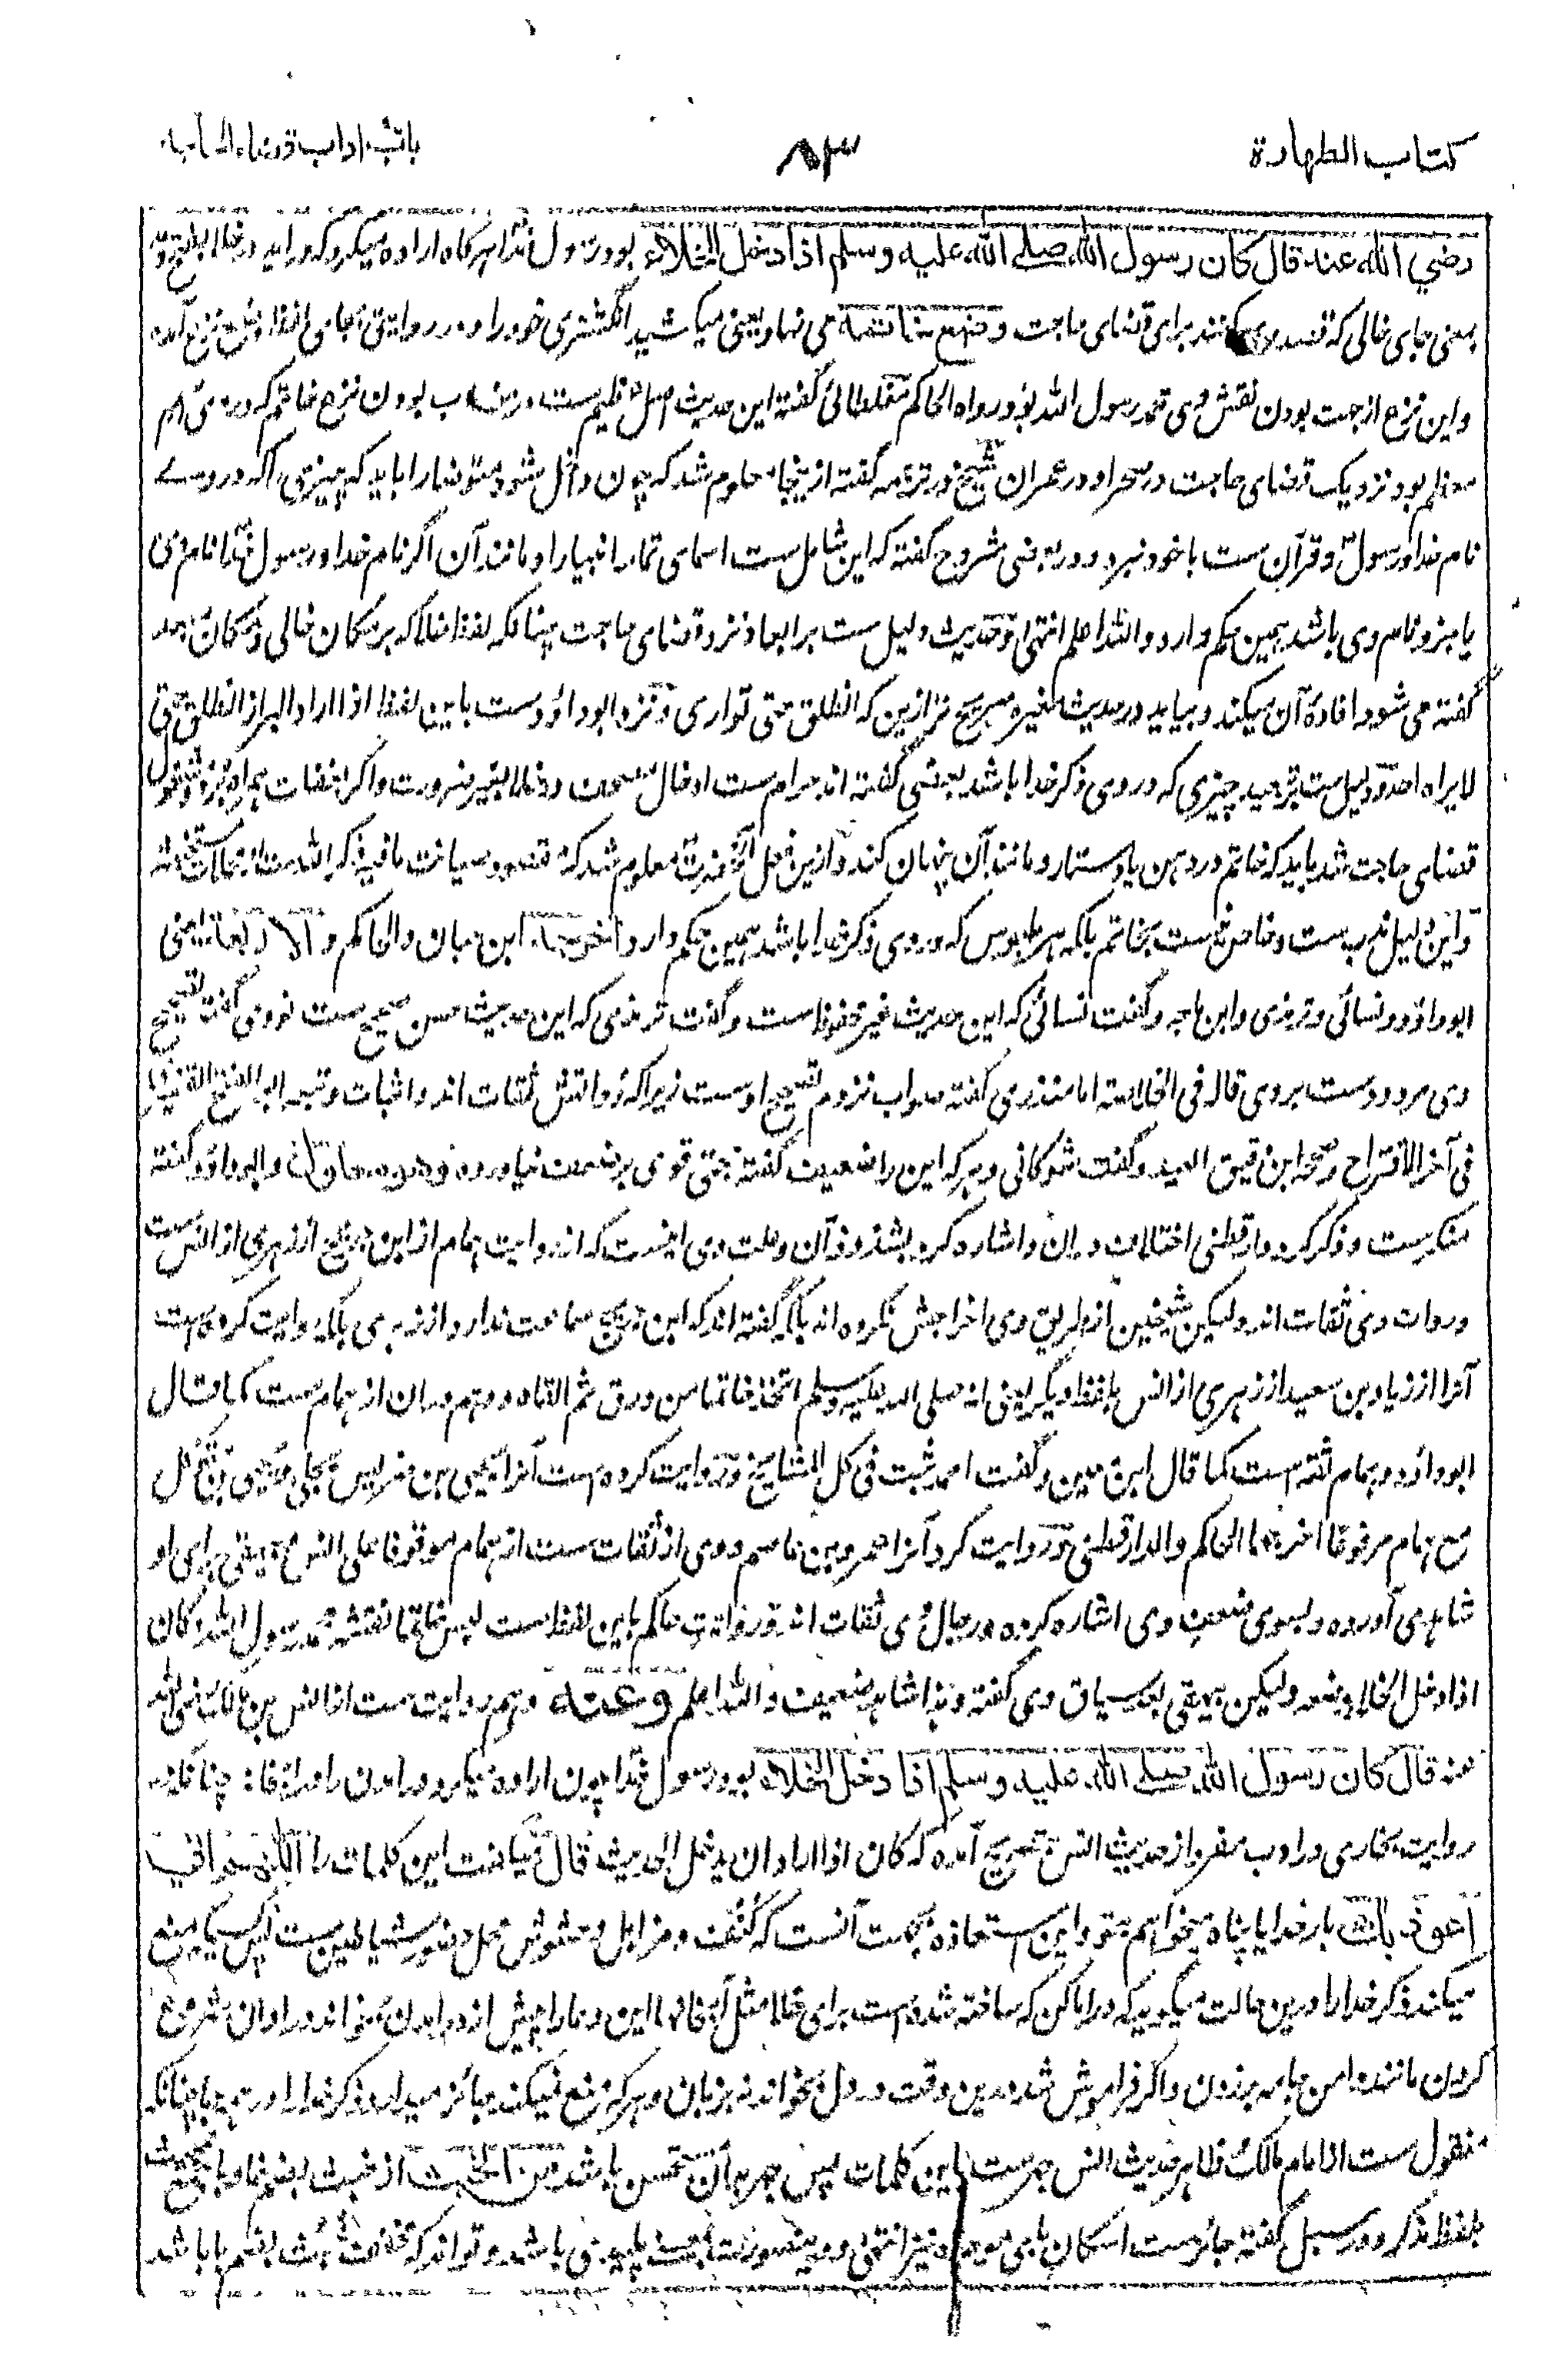 کتاب الطهارة
۸۳
باب آداب قضاء الحاجة
رضي الله عنه قال کان رسول الله صلے الله علیه وسلم اذا دخل الخلاء بود رسول خدا هرگاه اراده میکرد که درآید در خلا
بمعنی جای خالی که قصد می کنند برای قضای حاجت وضع خاتمه می نهاد یعنی میکشید انگشتری خود را و در روایتی بجای لفظ وضع نزع آمده
و این نزع از جهت بودن نقش وی محمد رسول الله بود رواه الحاکم مغلطائی گفته این حدیث اصل عظیم ست در بودن نزع خاتم که در وی اسم
معظم بود نزدیک قضای حاجت در صحرا و در عمران شیخ در ترجمه گفته ازینجا معلوم شد که چون داخل شود متوضا را باید که چیزی که در وے
نام خدا و رسول و قرآن ست با خود نبرد و در بعضی شروح گفته که این شامل ست اسمای تمام انبیا را و مانند آن اگر نام خدا و رسول نام وی
باشد همین حکم دارد والله اعلم انتهی و حدیث دلیل ست بر ابعاد نزد قضای حاجت چنانکه لفظ خلا که بر مکان خالی و مکان معد
گفته می شود افادهٔ آن میکند و بیاید در حدیث مغیره صریح تر ازین که انطلق حتی تواری و نزد ابو داؤد ست باین لفظ اذا اراد البراز انطلق حتی
لا یراه احد و دلیل ست بر تبعید چیزی که در وی ذکر خدا باشد بعضی گفته اند حرام ست ادخال مصحف در خلا بغیر ضرورت و اگر
قضای حاجت شد باید که خاتم در دهن یا دستار و مانند آن پنهان کند و ازین فعل آنحضرت معلوم شد که مقصود صیانت ما فیه ذکر الله ست از
و این دلیل ندب ست و خاص نیست بخاتم بلکه هر ملبوس که در وی ذکر خدا باشد همین حکم دارد اخرجه ابن حبان والحاکم والاربعة یعنی
ابو داؤد و نسائی و ترمذی و ابن ماجه و گفت نسائی که این حدیث غیر محفوظ ست و گفت ترمذی که این حدیث حسن صحیح ست نووی گفت تصحیح
وی مردود ست بر وی قاله فی الخلاصة اما منذری گفته صواب نزدم تصحیح اوست زیرا که رواتش ثقات اند و اثبات و تبعه ابو الفتح القشیری
فی آخر الاقتراح و صححه ابن دقیق العید و گفت شوکانی و هر که این را ضعیف گفته حجتی قوی بر ضعف نیاورده وهو معلول و ابو داؤد گفته
منکر ست و ذکر کرد دارقطنی اختلاف در ان و اشاره کرد بشذوذ آن و علت وی اینست که از روایت همام از ابن جریج از زهری از انس ست
و روات وی ثقات اند ولیکن شیخین از طریق وی اخراجش نکرده اند بلکه گفته اند که ابن جریج سماعت ندارد از زهری بلکه روایت کرده ست
آنرا از زیاد بن سعید از زهری از انس بلفظ دیگر یعنی انه صلی الله علیه وسلم اتخذ خاتما من ورق ثم القاه و وهم در ان از همام ست کما قال
ابو داؤد و همام ثقه است کما قال ابن معین و گفت احمد ثبت فی کل المشایخ و روایت کرده ست آنرا یحیی بن ضریس بجلی و یحیی بن متوکل
مع همام مرفوعا اخرجهما الحاکم والدارقطنی و روایت کرد آنرا عمرو بن عاصم و وی از ثقات ست از همام موقوفا علی انس بیهقی برای او
شاهدی آورده و بسوی ضعف وی اشاره کرده و رجال وی ثقات اند و روایت حاکم باین لفظ ست لبس خاتما نقشه محمد رسول الله وکان
اذا دخل الخلاء وضعه ولیکن بیهقی بعد سیاق وی گفته وهذا شاهد ضعیف والله اعلم وعنه و هم روایت ست از انس بن مالک رضی الله
عنه قال کان رسول الله صلے الله علیه وسلم اذا دخل الخلاء بود رسول خدا چون اراده میکرد درآمدن را در خلا چنانکه در
روایت بخاری در ادب مفرد از حدیث انس تصریح آمده که کان اذا اراد ان یدخل الحدیث قال میگفت این کلمات را اللهم انی
اعوذ بك بار خدایا پناه میخواهم بتو و این استعاذه بجهت آنست که کنف و مزابل و حشوش محل حضور شیاطین ست پس کسیکه منع
میکند ذکر خدا را درین حالت میگوید که در اماکن که ساخته شده است برای خلا مثل این دعا را پیش از درآمدن بخواند و در آوان شروع
کردن مانند دامن جامه برزدن و اگر فراموش شد درین وقت در دل بخواند نه بزبان و هر که منع نمیکند جائز میدارد ذکر خدا را در همه جا چنانکه
منقول ست از امام مالک و ظاهر حدیث انس جهر ست باین کلمات پس جهر بدان مستحسن باشد من الخبث از خبث بضم خا و با جمع خبیث
بلفظ مذکر و در سبل گفته جائز ست اسکان بای موحده نیز انتهی باشد و تواند که مخفف خبث بضم با باشد